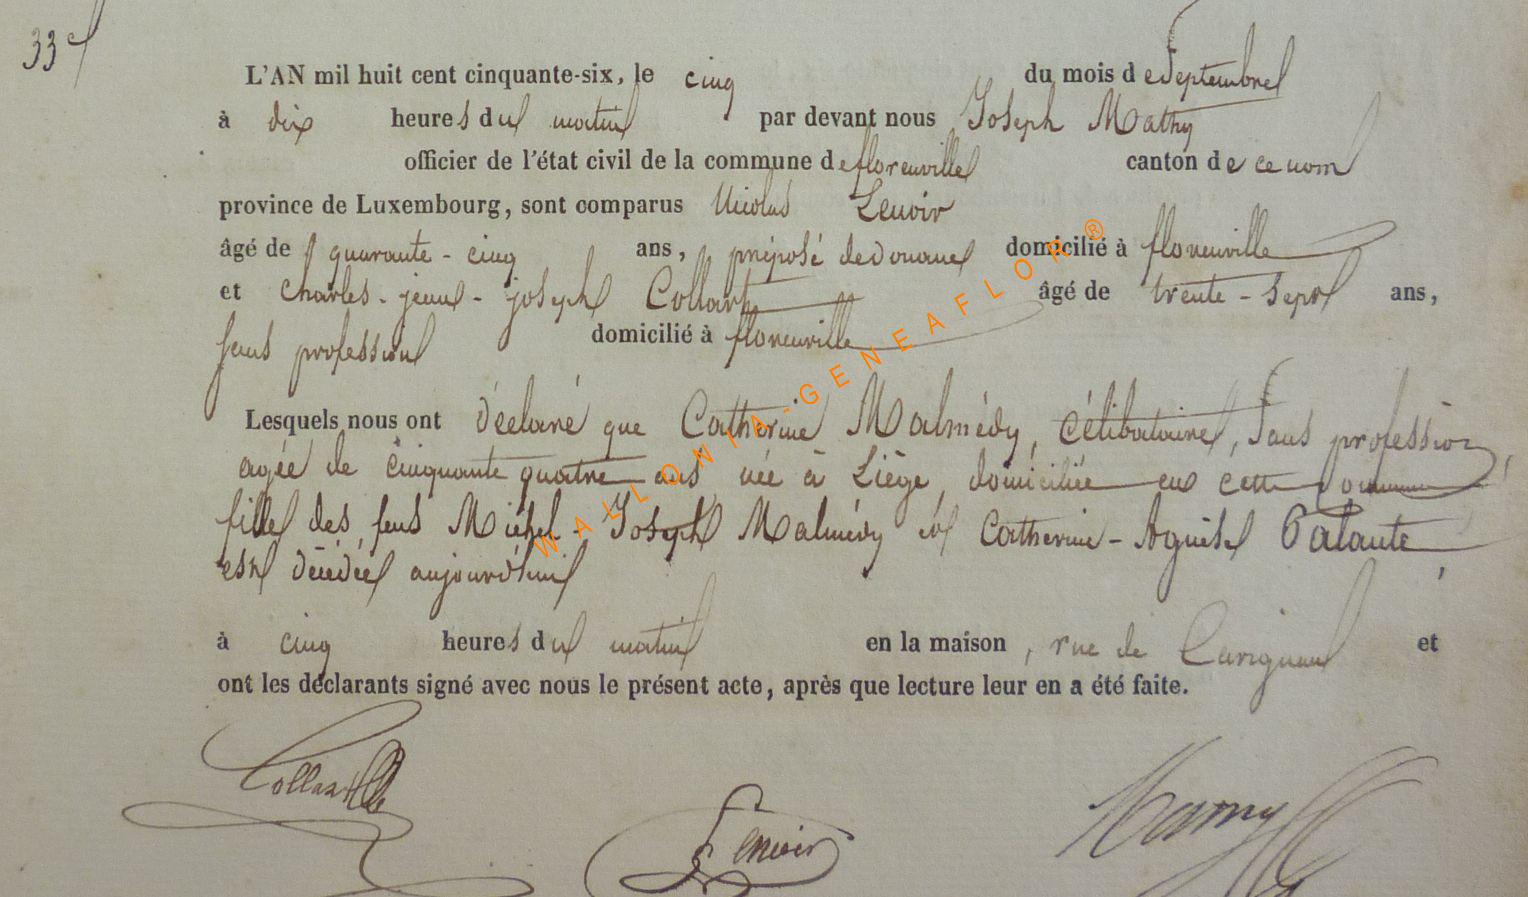 33e
L'AN mil huit cent cinquante-six, le cinq du mois de Septembre
à dix heures du matin par devant nous Joseph Mathy
officier de l'état civil de la commune de florenville canton de ce nom
province de Luxembourg, sont comparus Nicolas Lenoir
âgé de quarante-cinq ans, préposé de Douane domicilié à florenville
et Charles-jean-joseph Collart âgé de trente-sept ans,
sans profession domicilié à florenville
Lesquels nous ont déclaré que Catherine Malmédy, célibataire, sans profession,
agée de cinquante quatre ans née à Liège, domiciliée en cette commune
fille des feus Michel-Joseph Malmédy et Catherine-Agnès Palante,
est décédée aujourd'hui
à cinq heures du matin en la maison, rue de Carignan et
ont les déclarants signé avec nous le présent acte, après que lecture leur en a été faite.
Collart Lenoir
WALLONIA-GENEAFLOR®